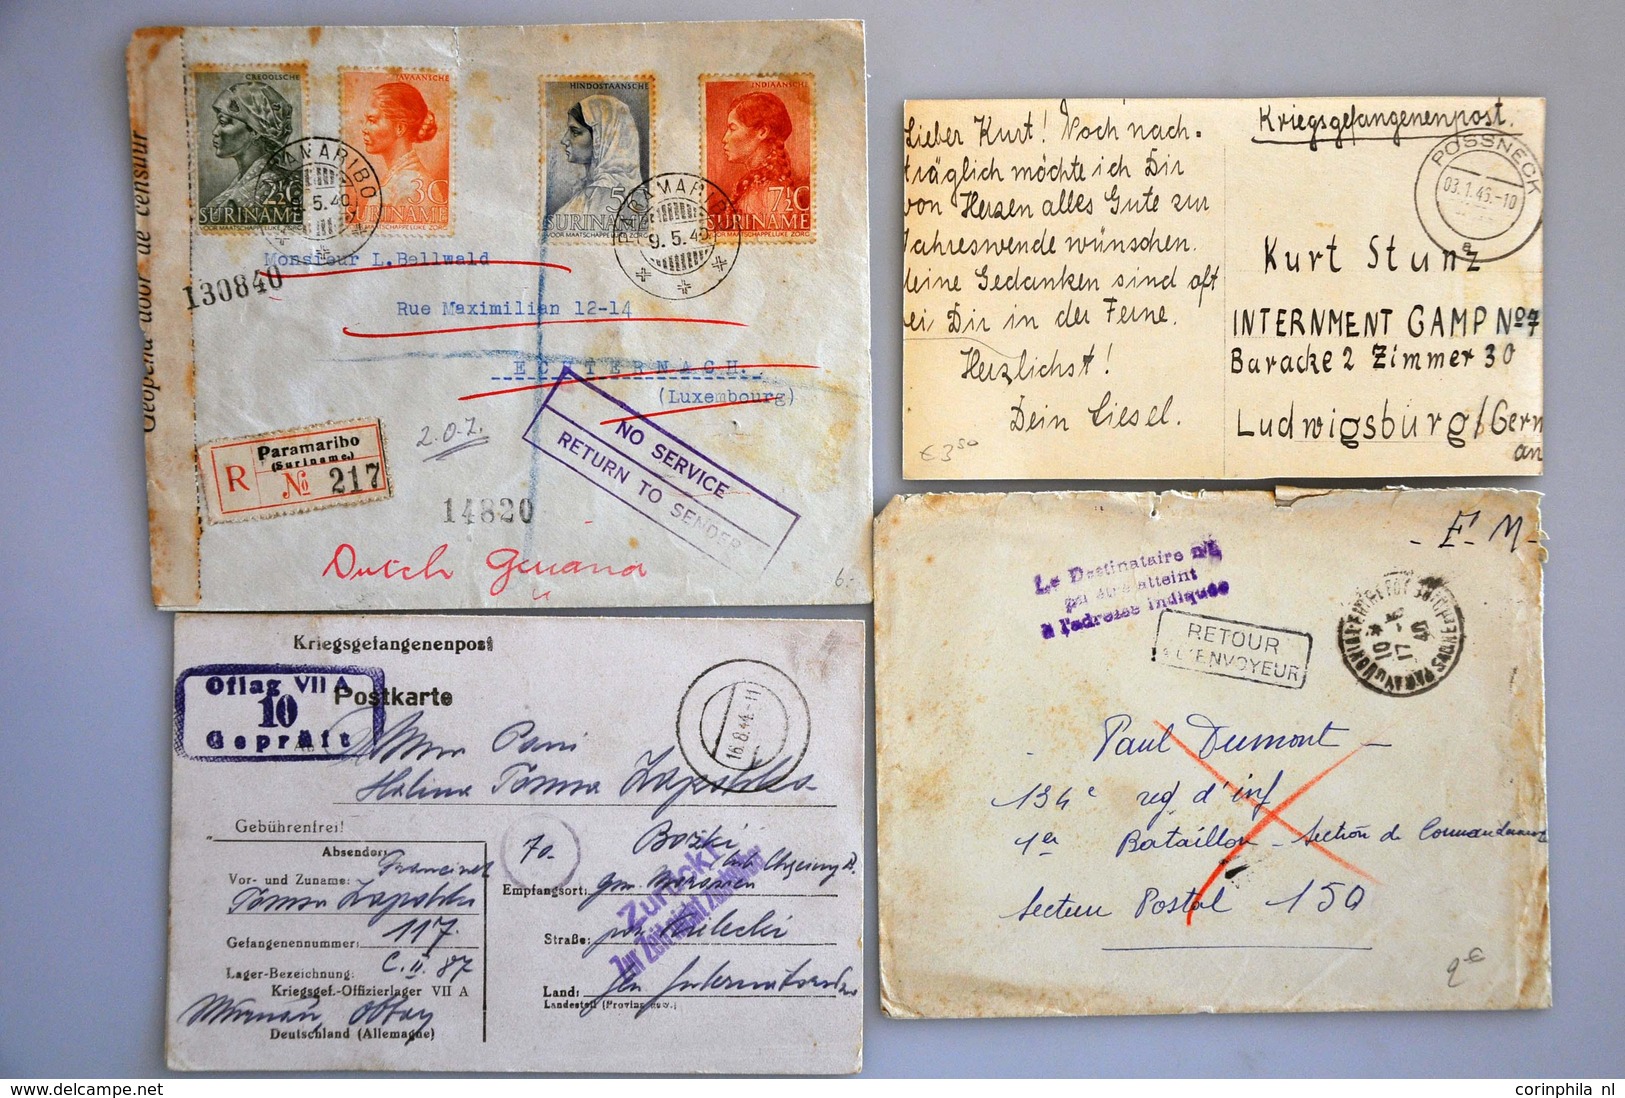 CREOOLSCHE
JAVAANSCHE
HINDOSTAANSCHE
INDIAANSCHE
2½C
3C
5
7½C
SURINAME
SURINAME
SURINAME
SURINAME
VOOR MAATSCHAPPELIJKE ZORG
VOOR MAATSCHAPPELIJKE ZORG
VOOR MAATSCHAPPELIJKE ZORG
VOOR MAATSCHAPPELIJKE ZORG
PARAMARIBO
9.5.40
PARAMARIBO
9.5.40
Geopend door de censuur
130840
Monsieur L. Bellwald
Rue Maximilien 12-14
ECHTERNACH.
(Luxembourg)
2.0.Z.
NO SERVICE
RETURN TO SENDER
Paramaribo
(Suriname.)
R
No 217
14820
Dutch Guiana
6.-
Lieber Kurt! Noch nach-
träglich möchte ich Dir
von Herzen alles Gute zur
Jahreswende wünschen.
Meine Gedanken sind oft
bei Dir in der Ferne.
Herzlichst!
Dein Liesel.
€ 3.50
Kriegsgefangenenpost.
PÖSSNECK
03.1.46.-10
a
Kurt Stunz
INTERNMENT CAMP No 7
Baracke 2 Zimmer 30
Ludwigsburg/Germ
an
Kriegsgefangenenpost
Postkarte
Oflag VII A
10
Geprüft
16.8.44.-11
An
Pani
Halina Zapolska
Gebührenfrei!
70
Absender:
Vor- und Zuname:
Gefangenennummer: 117.
Lager-Bezeichnung:
Kriegsgef.-Offizierlager VII A
Murnau, Obbay
Deutschland (Allemagne)
Empfangsort:
Straße:
Land:
Landesteil (Provinz usw.)
Zurück!
Zur Zeit nicht zustellbar
- F. M -
Le Destinataire n'a
pu être atteint
à l'adresse indiquée
RETOUR
A L'ENVOYEUR
17-6
40
Paul Dumont -
134e reg d'inf
1er Bataillon - Section de Commandement
Secteur Postal 150
2 €
corinphila nl